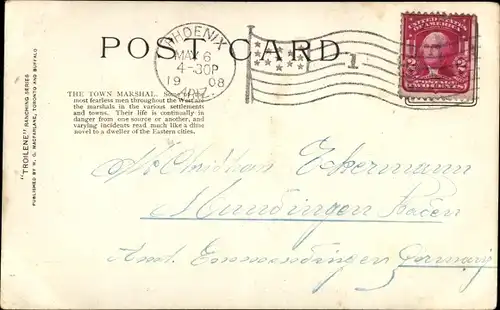 POST CARD
PHOENIX
MAY 6
4-30P
1908
ARIZ.
1
UNITED STATES
OF AMERICA
2 2
POSTAGE
TWO CENTS
THE TOWN MARSHAL. Some of the
most fearless men throughout the West are
the marshals in the various settlements
and towns. Their life is continually in
danger from one source or another, and
varying incidents read much like a dime
novel to a dweller of the Eastern cities.
"TROILENE" RANCHING SERIES
PUBLISHED BY W. G. MACFARLANE, TORONTO AND BUFFALO
Eckermann
Mundingen Baden
Amt. Emmendingen Germany